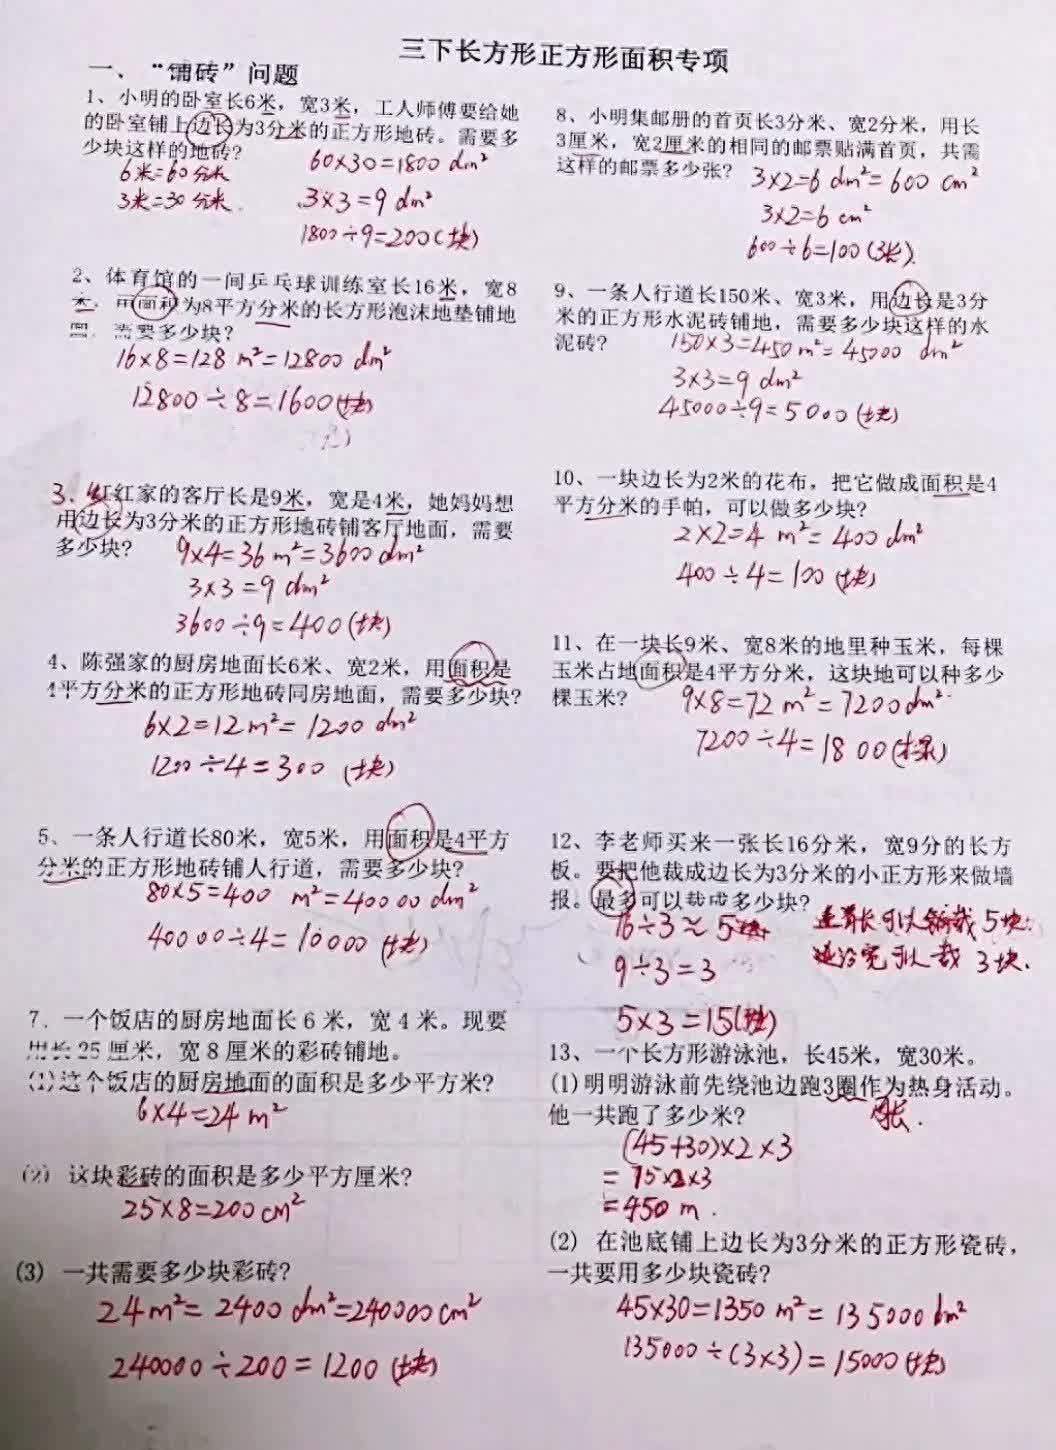 三下长方形正方形面积专项
一、“铺砖”问题
1、小明的卧室长6米，宽3米，工人师傅要给她
的卧室铺上边长为3分米的正方形地砖。需要多
少块这样的地砖?
6米=60分米
60×30=1800 dm²
3米=30分米.
3×3=9 dm²
1800÷9=200(块)
2、体育馆的一间乒乓球训练室长16米，宽8
米，用面积为8平方分米的长方形泡沫地垫铺地
面，需要多少块?
16×8=128 m²=12800 dm²
12800÷8=1600(块)
3.红红家的客厅长是9米，宽是4米，她妈妈想
用边长为3分米的正方形地砖铺客厅地面，需要
多少块?
9×4=36 m²=3600 dm²
3×3=9 dm²
3600÷9=400(块)
4、陈强家的厨房地面长6米、宽2米，用面积是
4平方分米的正方形地砖同房地面，需要多少块?
6×2=12 m²=1200 dm²
1200÷4=300 (块)
5、一条人行道长80米，宽5米，用面积是4平方
分米的正方形地砖铺人行道，需要多少块?
80×5=400 m²=40000 dm²
40000÷4=10000 (块)
7．一个饭店的厨房地面长6米，宽4米。现要
用长25厘米，宽8厘米的彩砖铺地。
(1)这个饭店的厨房地面的面积是多少平方米?
6×4=24 m²
(2) 这块彩砖的面积是多少平方厘米?
25×8=200 cm²
(3) 一共需要多少块彩砖?
24 m²=2400 dm²=240000 cm²
240000÷200=1200 (块)
8、小明集邮册的首页长3分米、宽2分米，用长
3厘米，宽2厘米的相同的邮票贴满首页，共需
这样的邮票多少张?
3×2=6 dm²=600 cm²
3×2=6 cm²
600÷6=100(张).
9、一条人行道长150米、宽3米，用边长是3分
米的正方形水泥砖铺地，需要多少块这样的水
泥砖?
150×3=450 m²=45000 dm²
3×3=9 dm²
45000÷9=5000 (块)
10、一块边长为2米的花布，把它做成面积是4
平方分米的手帕，可以做多少块?
2×2=4 m²=400 dm²
400÷4=100 (块)
11、在一块长9米、宽8米的地里种玉米，每棵
玉米占地面积是4平方分米，这块地可以种多少
棵玉米?
9×8=72 m²=7200 dm²
7200÷4=1800(棵)
12、李老师买来一张长16分米，宽9分的长方
板。要把他裁成边长为3分米的小正方形来做墙
报。最多可以裁成多少块?
16÷3≈5块
9÷3=3
长可以裁5块.
宽可以裁 3块.
5×3=15(块)
13、一个长方形游泳池，长45米，宽30米。
(1)明明游泳前先绕池边跑3圈作为热身活动。
他一共跑了多少米?
周长.
(45+30)×2×3
=75×2×3
=450 m.
(2) 在池底铺上边长为3分米的正方形瓷砖，
一共要用多少块瓷砖?
45×30=1350 m²=135000 dm²
135000÷(3×3)=15000(块)